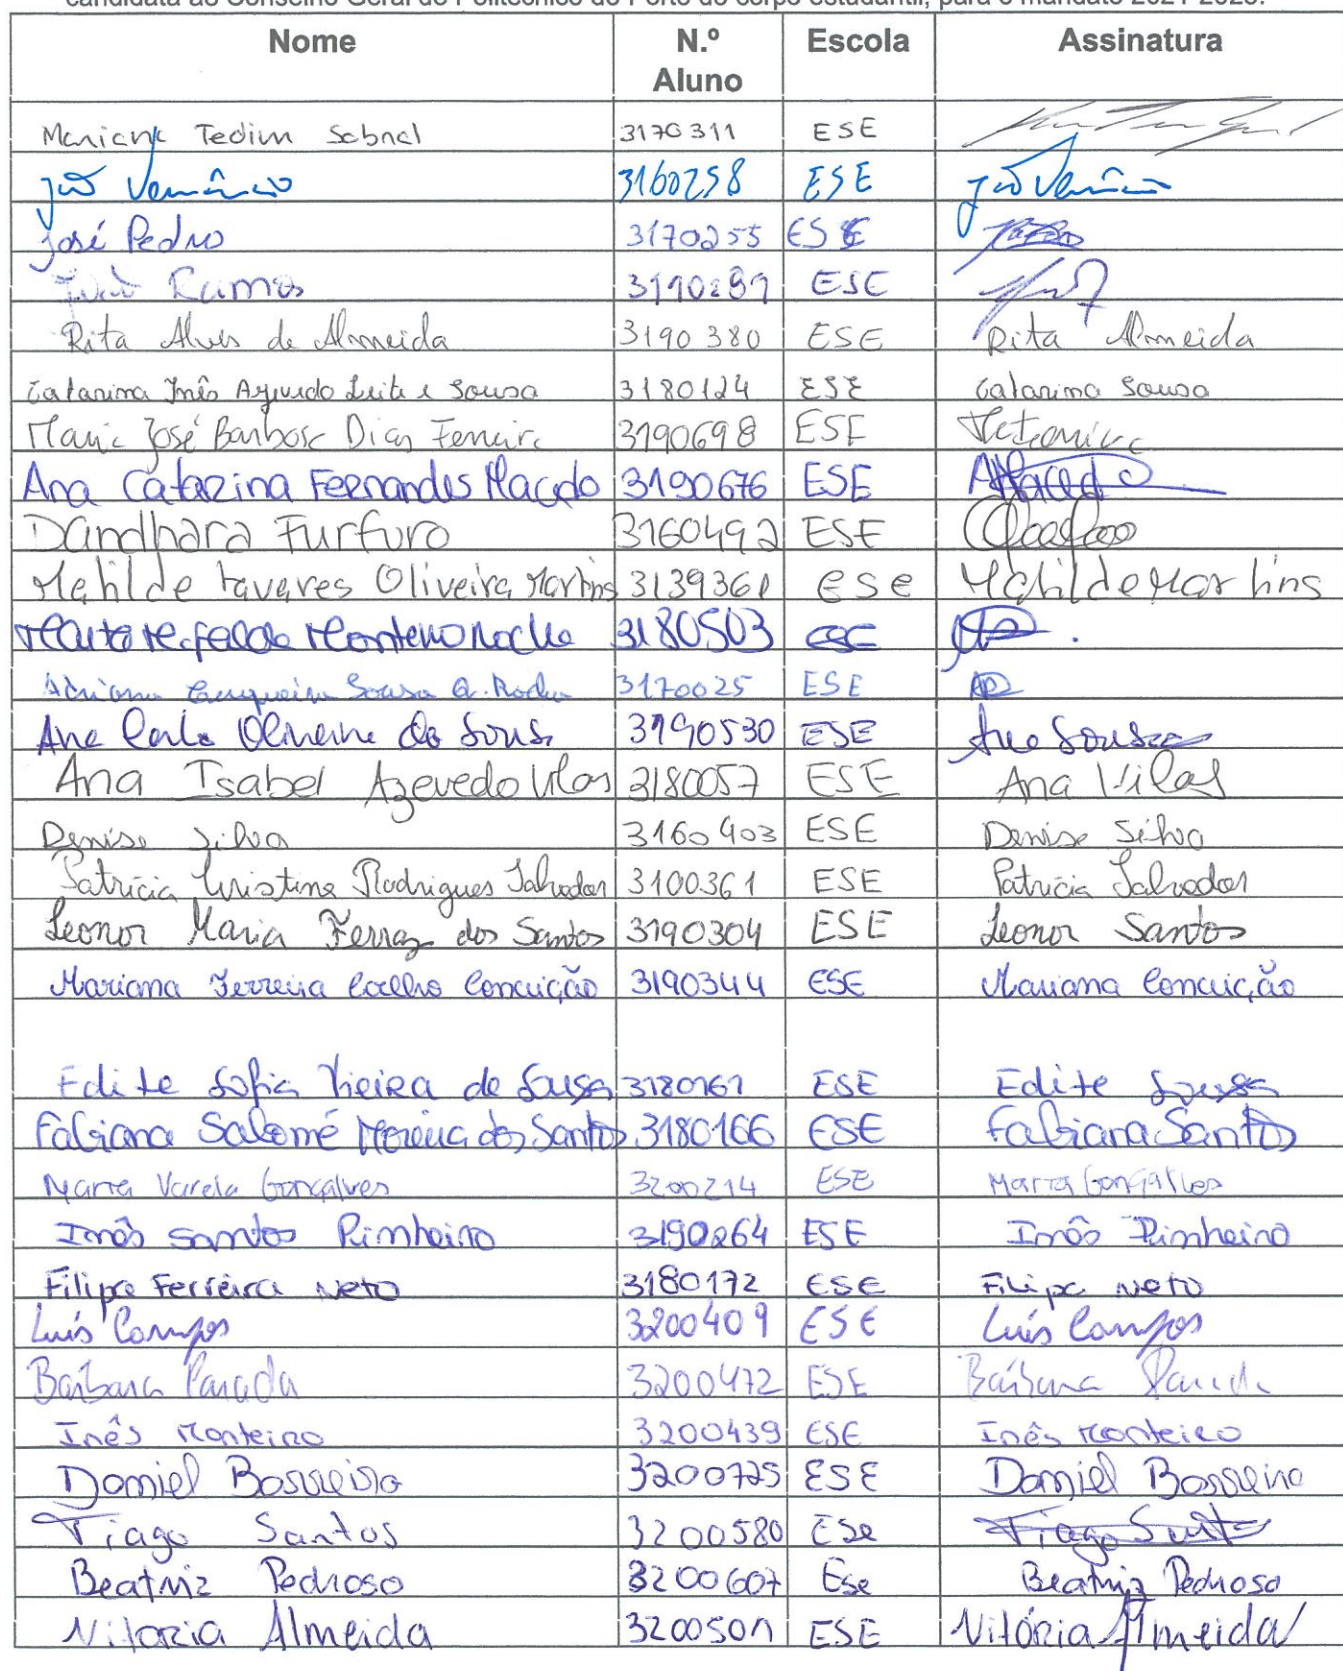 candidata ao Conselho Geral do Politécnico do Porto do corpo estudantil, para o mandato 2021-2023.
Nome N.º Aluno Escola Assinatura
Mariana Tedim Sobral 3170311 ESE
3160258 ESE
José Pedro 3170255 ESE
Ramos ESE
Rita Alves de Almeida 3190380 ESE Rita Almeida
Catarina Inês Azevedo Leite e Sousa 3180124 ESE Catarina Sousa
Maria José Barbosa Dias Ferreira 3190698 ESE
Ana Catarina Fernandes Macedo 3190676 ESE AMacedo
Dandhara Furfuro 3160492 ESE
Matilde Tavares Oliveira Martins 3139361 ese Matilde Martins
3180503 ESE
Adriana Cerqueira Sousa Rocha 3170025 ESE
Ana Carla Oliveira de Sousa 3190530 ESE Ana Sousa
Ana Isabel Azevedo Vilas 3180057 ESE Ana Vilas
Denise Silva 3160403 ESE Denise Silva
Patrícia Cristina Rodrigues Salvador 3100361 ESE Patrícia Salvador
Leonor Maria Ferraz dos Santos 3190304 ESE Leonor Santos
Mariana Ferreira Coelho Conceição 3190344 ESE Mariana Conceição
Edite Sofia Vieira de Sousa 3180161 ESE Edite Sousa
Fabiana Salomé Moreira dos Santos 3180166 ESE Fabiana Santos
Marta Varela Gonçalves 3200214 ESE Marta Gonçalves
Inês Santos Pinheiro 3190264 ESE Inês Pinheiro
Filipa Ferreira Neto 3180172 ESE Filipa Neto
Luís Campos 3200409 ESE Luís Campos
Bárbara Parada 3200472 ESE Bárbara Parada
Inês Monteiro 3200439 ESE Inês Monteiro
Daniel 3200725 ESE Daniel
Tiago Santos 3200580 Ese Tiago Santos
Beatriz Pedroso 3200607 Ese Beatriz Pedroso
Vitoria Almeida 3200501 ESE Vitória Almeida